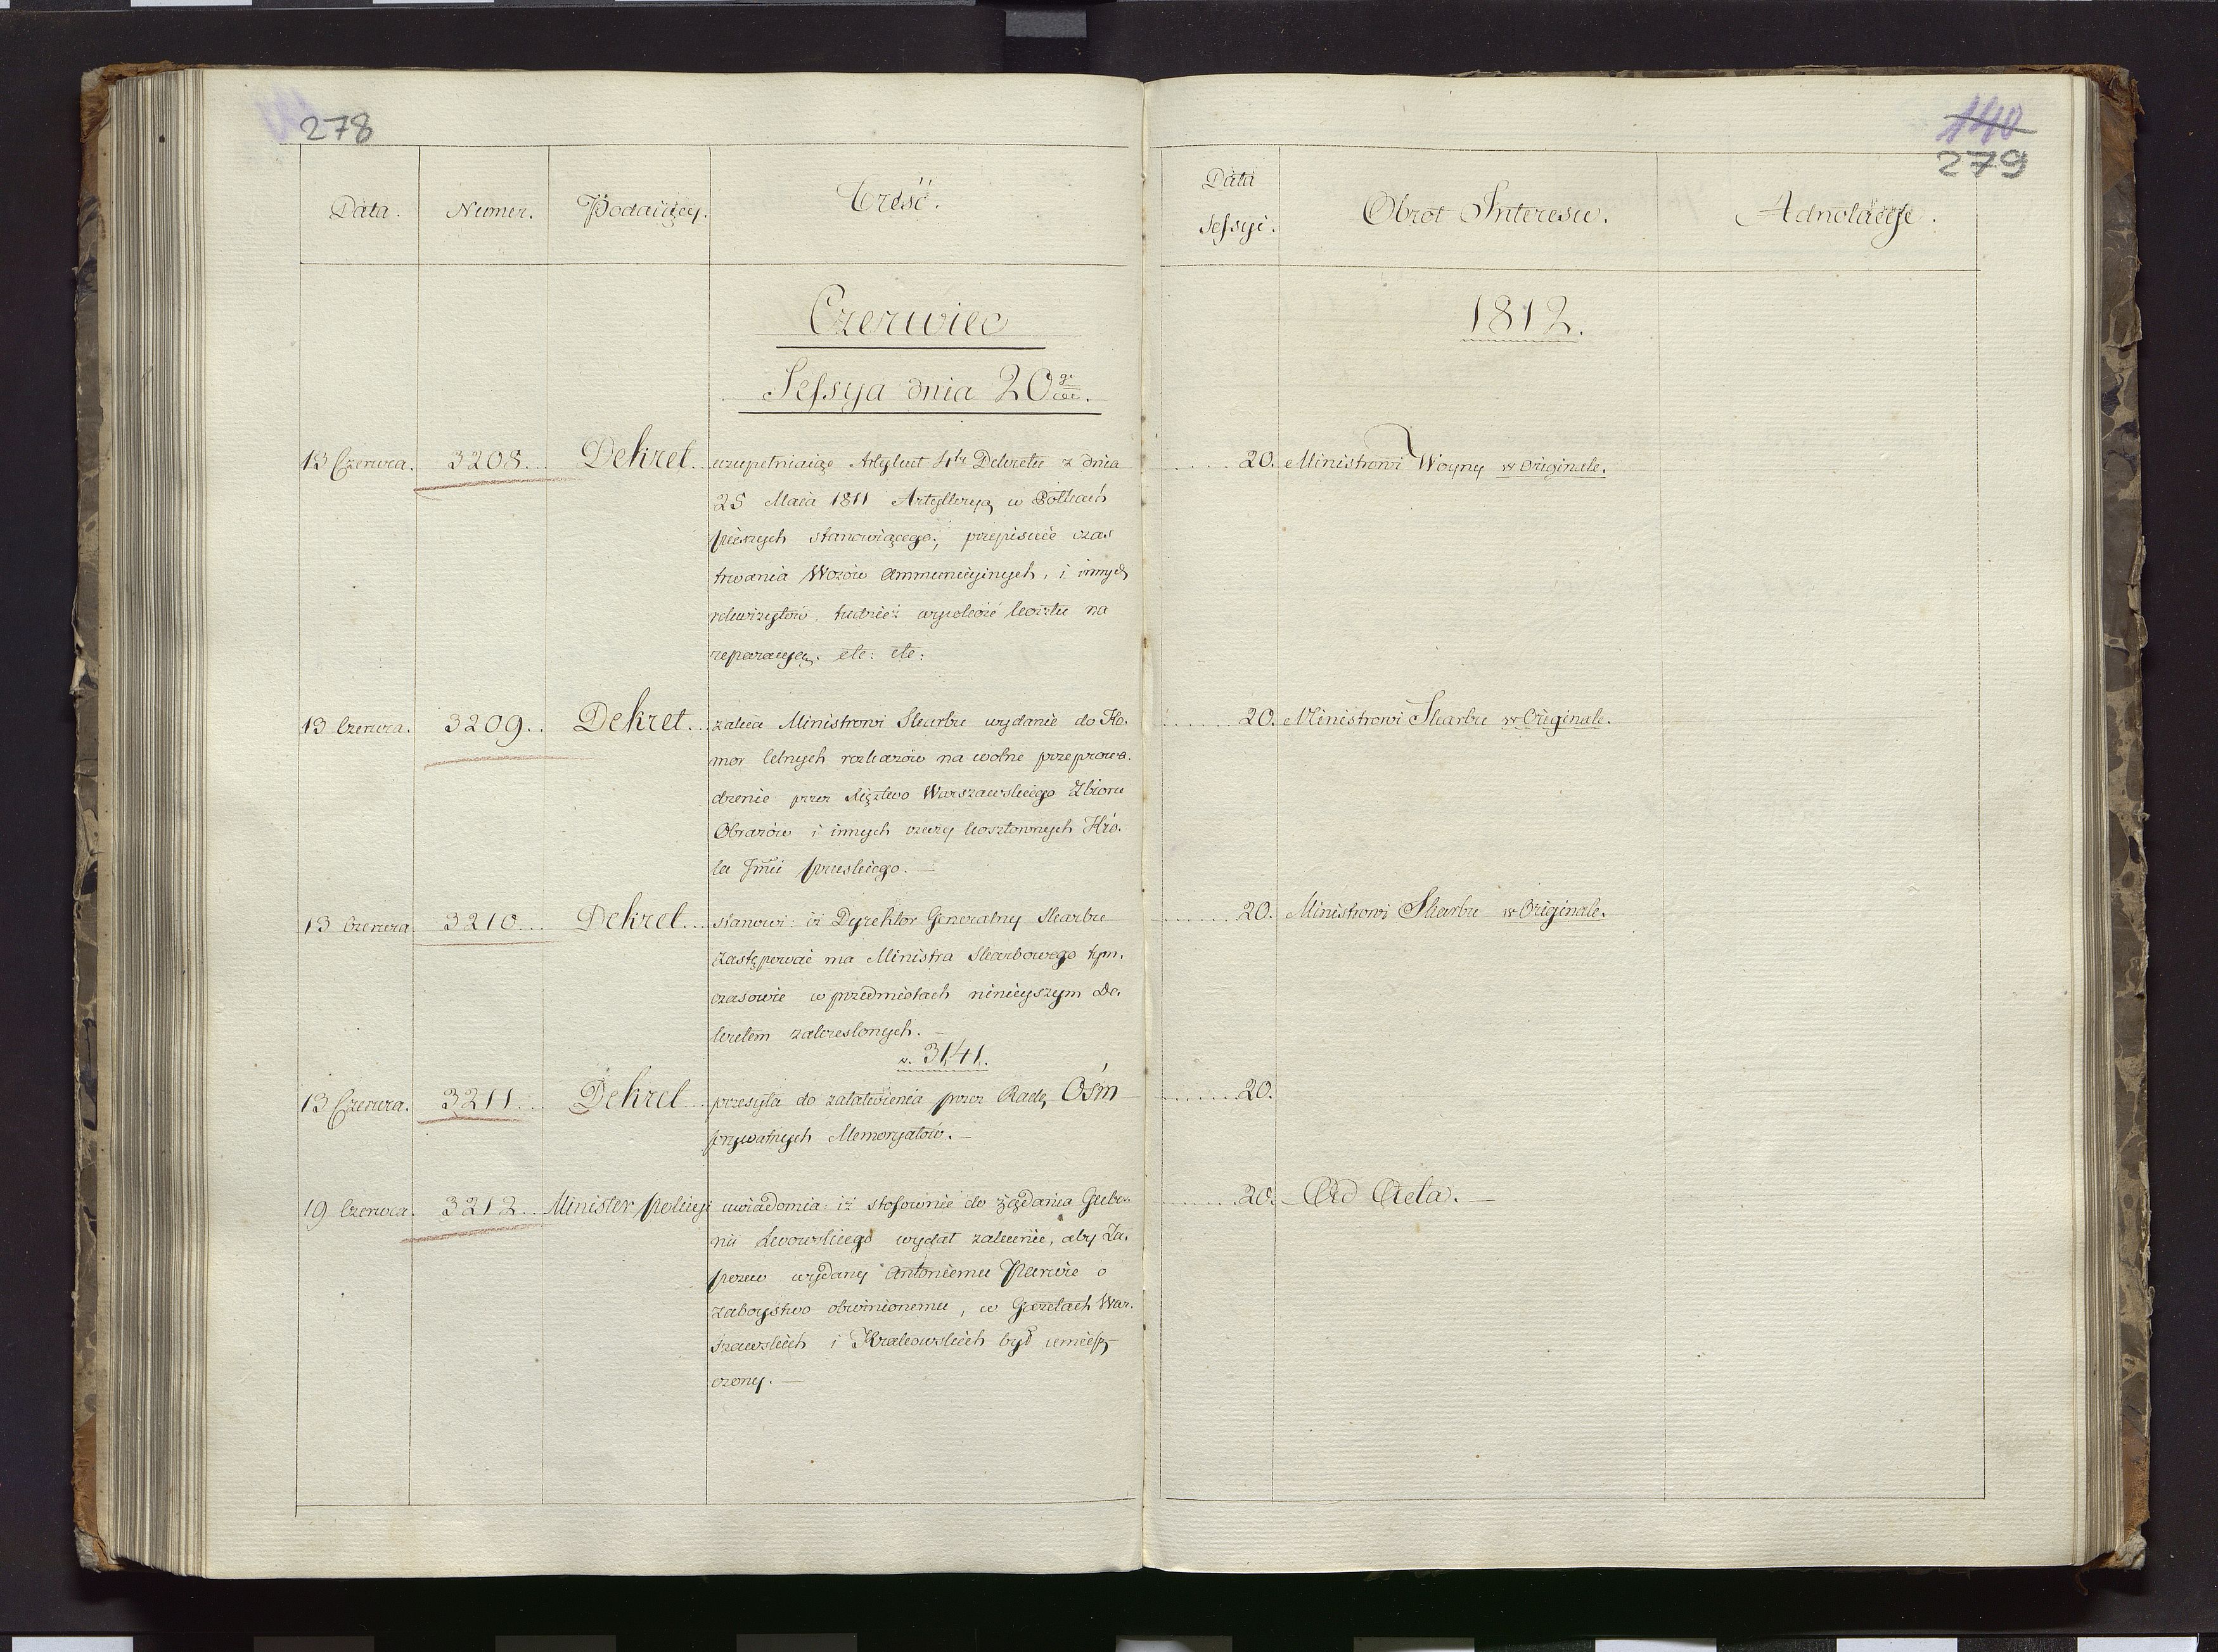 278
140
279
Data.
Numer.
Podaiący.
Treść.
Data Sessyi.
Obrot Interesu.
Adnotacye.
Czerwiec
1812.
Sessya dnia 20go
13 Czerwca. 3208... Dekret.. uzupełniaiąc Artykuł 4ty Dekretu z dnia
25 Maia 1811 Artylleryą w Półkach
pieszych stanowiącego; przepisuie czas
trwania Wozów Ammunicyinych, i innych
rekwizytów, tudzież wysokość kosztu na
reparacyą. etc: etc:
20. Ministrowi Woyny w Originale.
13 Czerwca. 3209.. Dekret... zaleca Ministrowi Skarbu wydanie do Ko.
mor celnych rozkazów na wolne przeprowa.
dzenie przez Xięztwo Warszawskiego Zbioru
Obrazów i innych rzeczy kosztownych Kró.
la Jmci pruskiego. —
20. Ministrowi Skarbu w Originale.
13 Czerwca 3210... Dekret... stanowi: iż Dyrektor Generalny Skarbu
zastępować ma Ministra Skarbowego tym.
czasowie w przedmiotach ninieyszym De.
kretem zakreslonych. —
v. 3141.
20. Ministrowi Skarbu w Originale.
13 Czerwca. 3211... Dekret... przesyła do załatwienia przez Radę Ośm
prywatnych Memoryałów. —
20.
19 Czerwca. 3212... Minister policyi uwiadomia: iż stosownie do żądania Guber.
nii Lwowskiego wydał zalecenie, aby Za.
pozew wydany Antoniemu o
zaboystwo obwinionemu, w Gazetach War.
szawskich i Krakowskich był umiesz
czony. —
20. Ad Acta. —